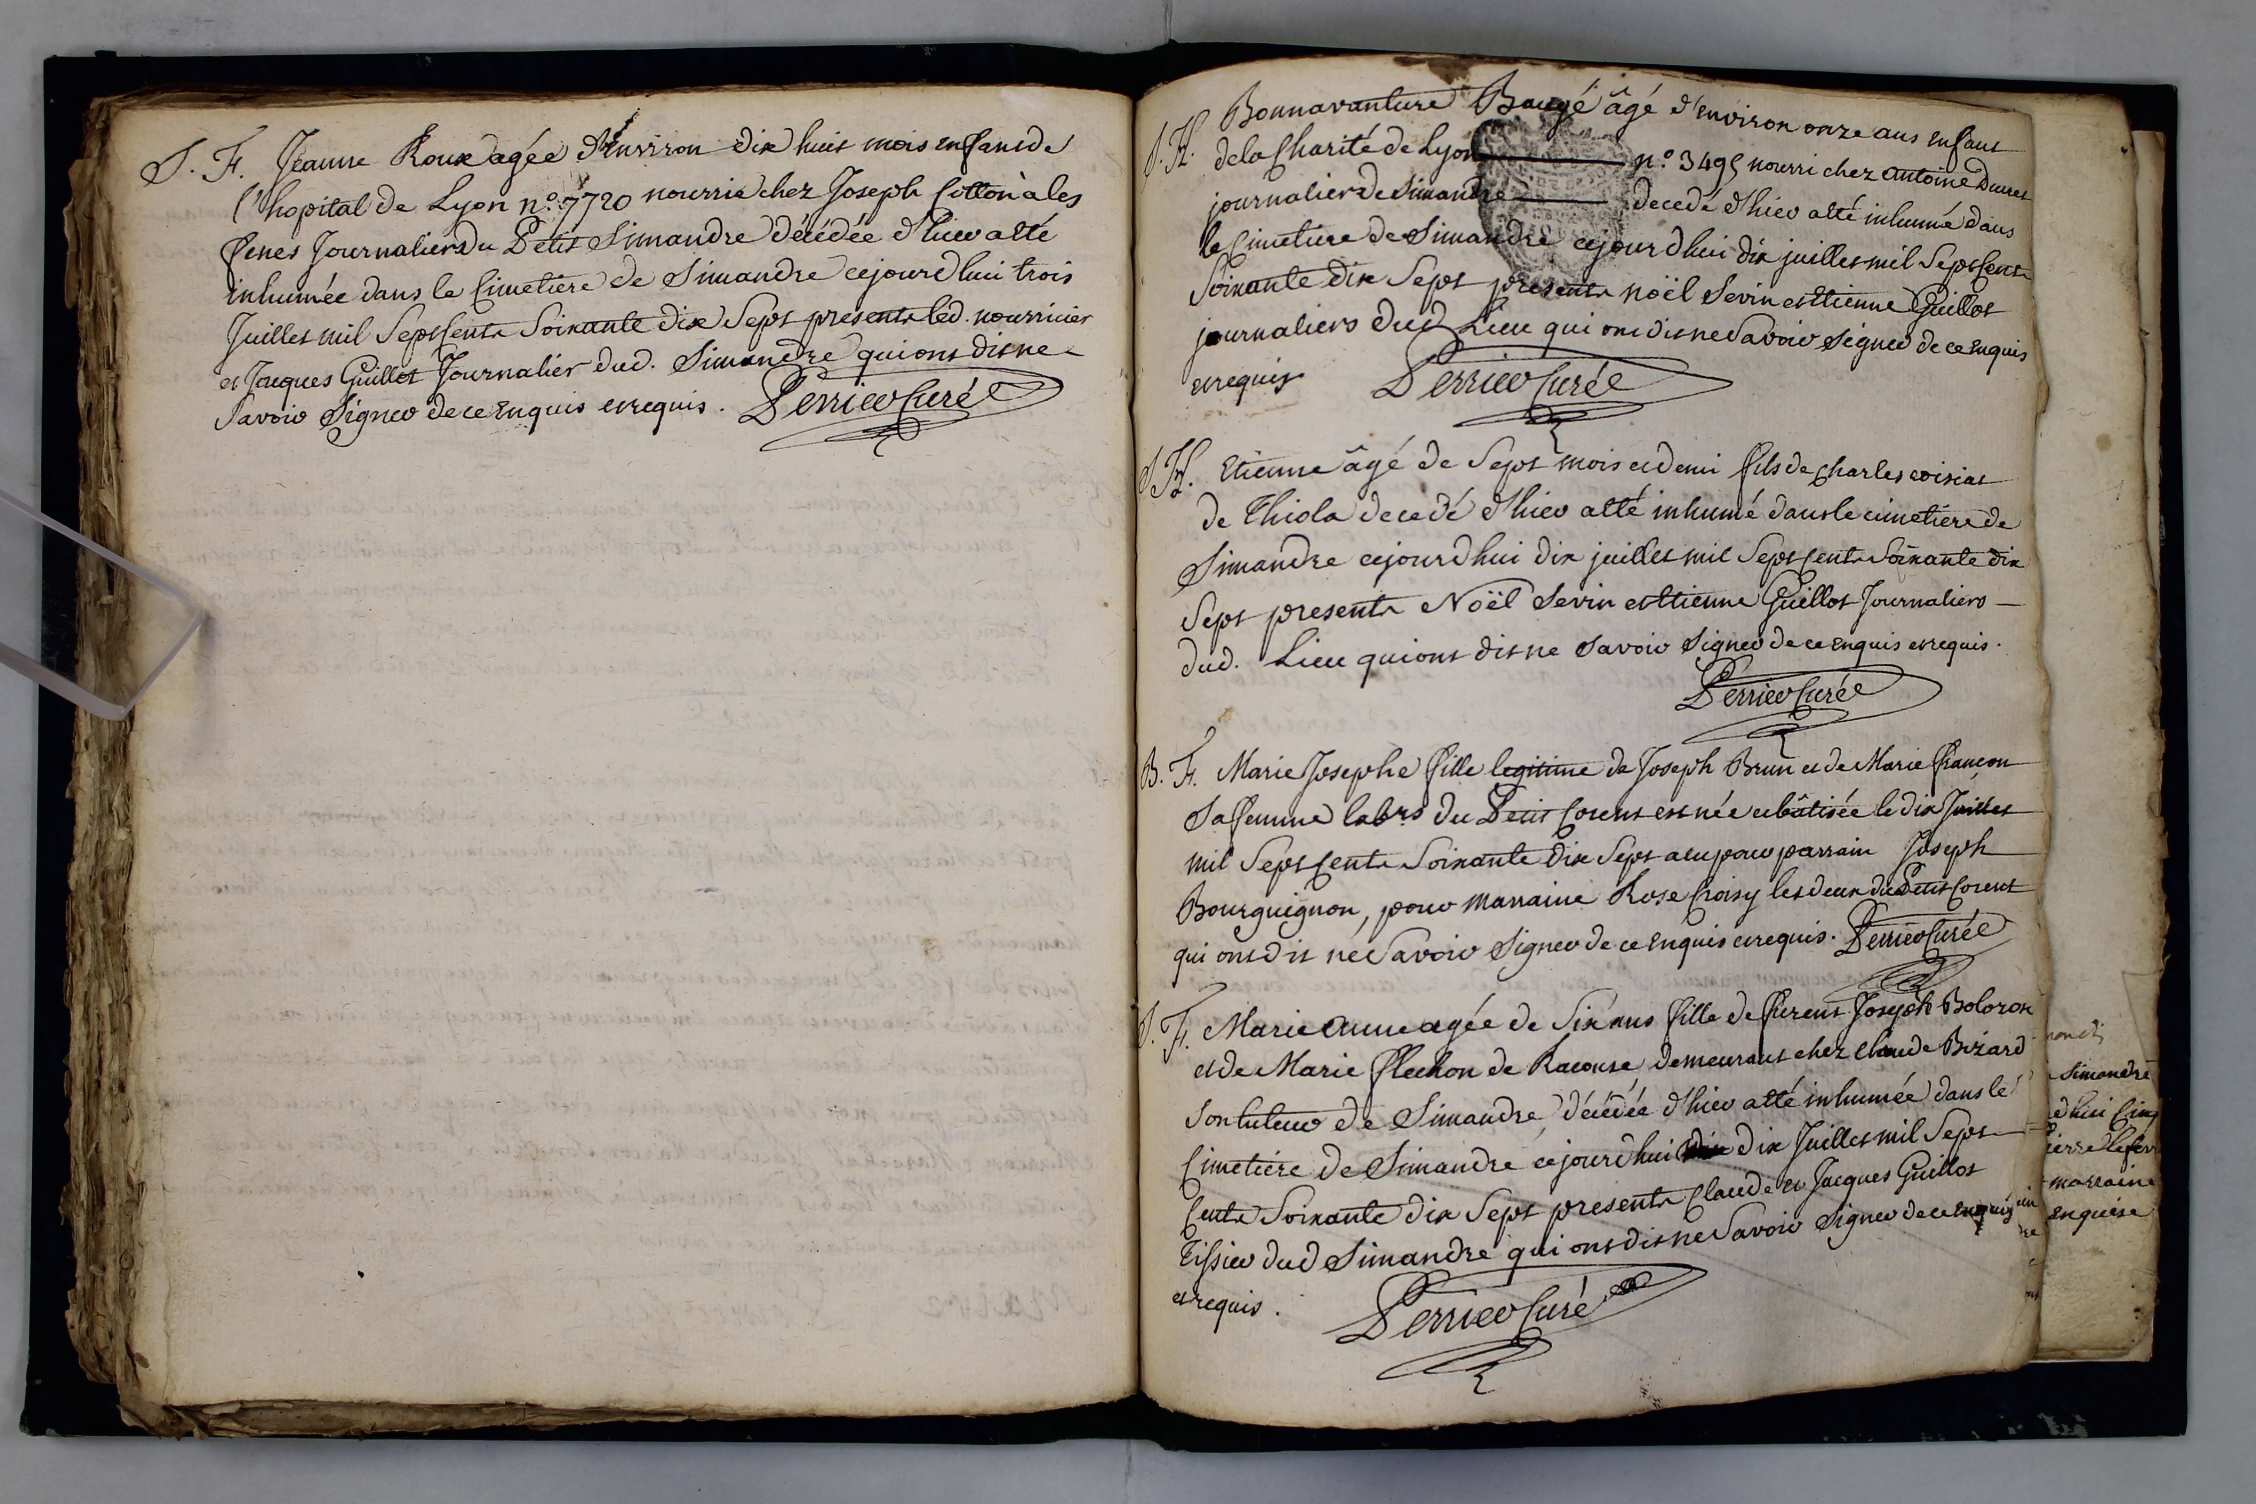 S. F. Jeanne Roux agée d'Environ dix huit mois enfant de
l'hopital de Lyon n.º 7720 nourrie chez Joseph Cotton à les
fenes Journalier du Petit Simandre décédée d'hier atté
inhumée dans le Cimetiere de Simandre cejourdhui trois
Juillet mil Sept Cents Soixante dix Sept presents led. nourricier
et Jacques Guillot Journalier dud. Simandre qui ont dit ne
Savoir Signer de ce Enquis et requis. Perrier Curé
S. H. Bonnavanture Baugé âgé d'environ onze ans enfant
de la Charité de Lyon n.º 3495 nourri chez antoine
journalier de Simandre decedé d'hier atté inhumé dans
le Cimetiere de Simandre cejourdhui dix juillet mil Sept Cents
Soixante dix Sept presents noël Sevin et Etienne Guillot
journaliers dud Lieu qui ont dit ne Savoir Signer de ce Enquis
et requis Perrier Curé
S. H. Etienne âgé de Sept mois et demi fils de Charles voisiat
de Thiola decedé d'hier atté inhumé dans le cimetiere de
Simandre cejourdhui dix juillet mil Sept Cents Soixante dix
Sept presents Noël Sevin et Etienne Guillot Journaliers
dud. Lieu qui ont dit ne Savoir Signer de ce Enquis et requis.
Perrier Curé
B. F. Marie Josephe fille legitime de Joseph Brun et de Marie françon
Sa femme labrs du Petit Corent est née et bâtisée le dix Juillet
mil Sept Cents Soixante dix Sept a eu pour parrain Joseph
Bourguignon, pour marraine Rose Croisy les deux du Petit Corent
qui ont dit ne Savoir Signer de ce Enquis et requis. Perrier Curé
S. F. Marie Anne agée de Six ans fille de furent Joseph Boloron
et de Marie flechon de Racouse demeurant chez Claude Bizard
Son tuteur de Simandre, décédée d'hier atté inhumée dans le
Cimetiére de Simandre cejourdhui dix Juillet mil Sept
Cents Soixante dix Sept presents Claude et Jacques Guillot
Tissier dud Simandre qui ont dit ne Savoir Signer de ce Enquis
et requis. Perrier Curé
Simandre
dhui Cinq
marraine
enquise